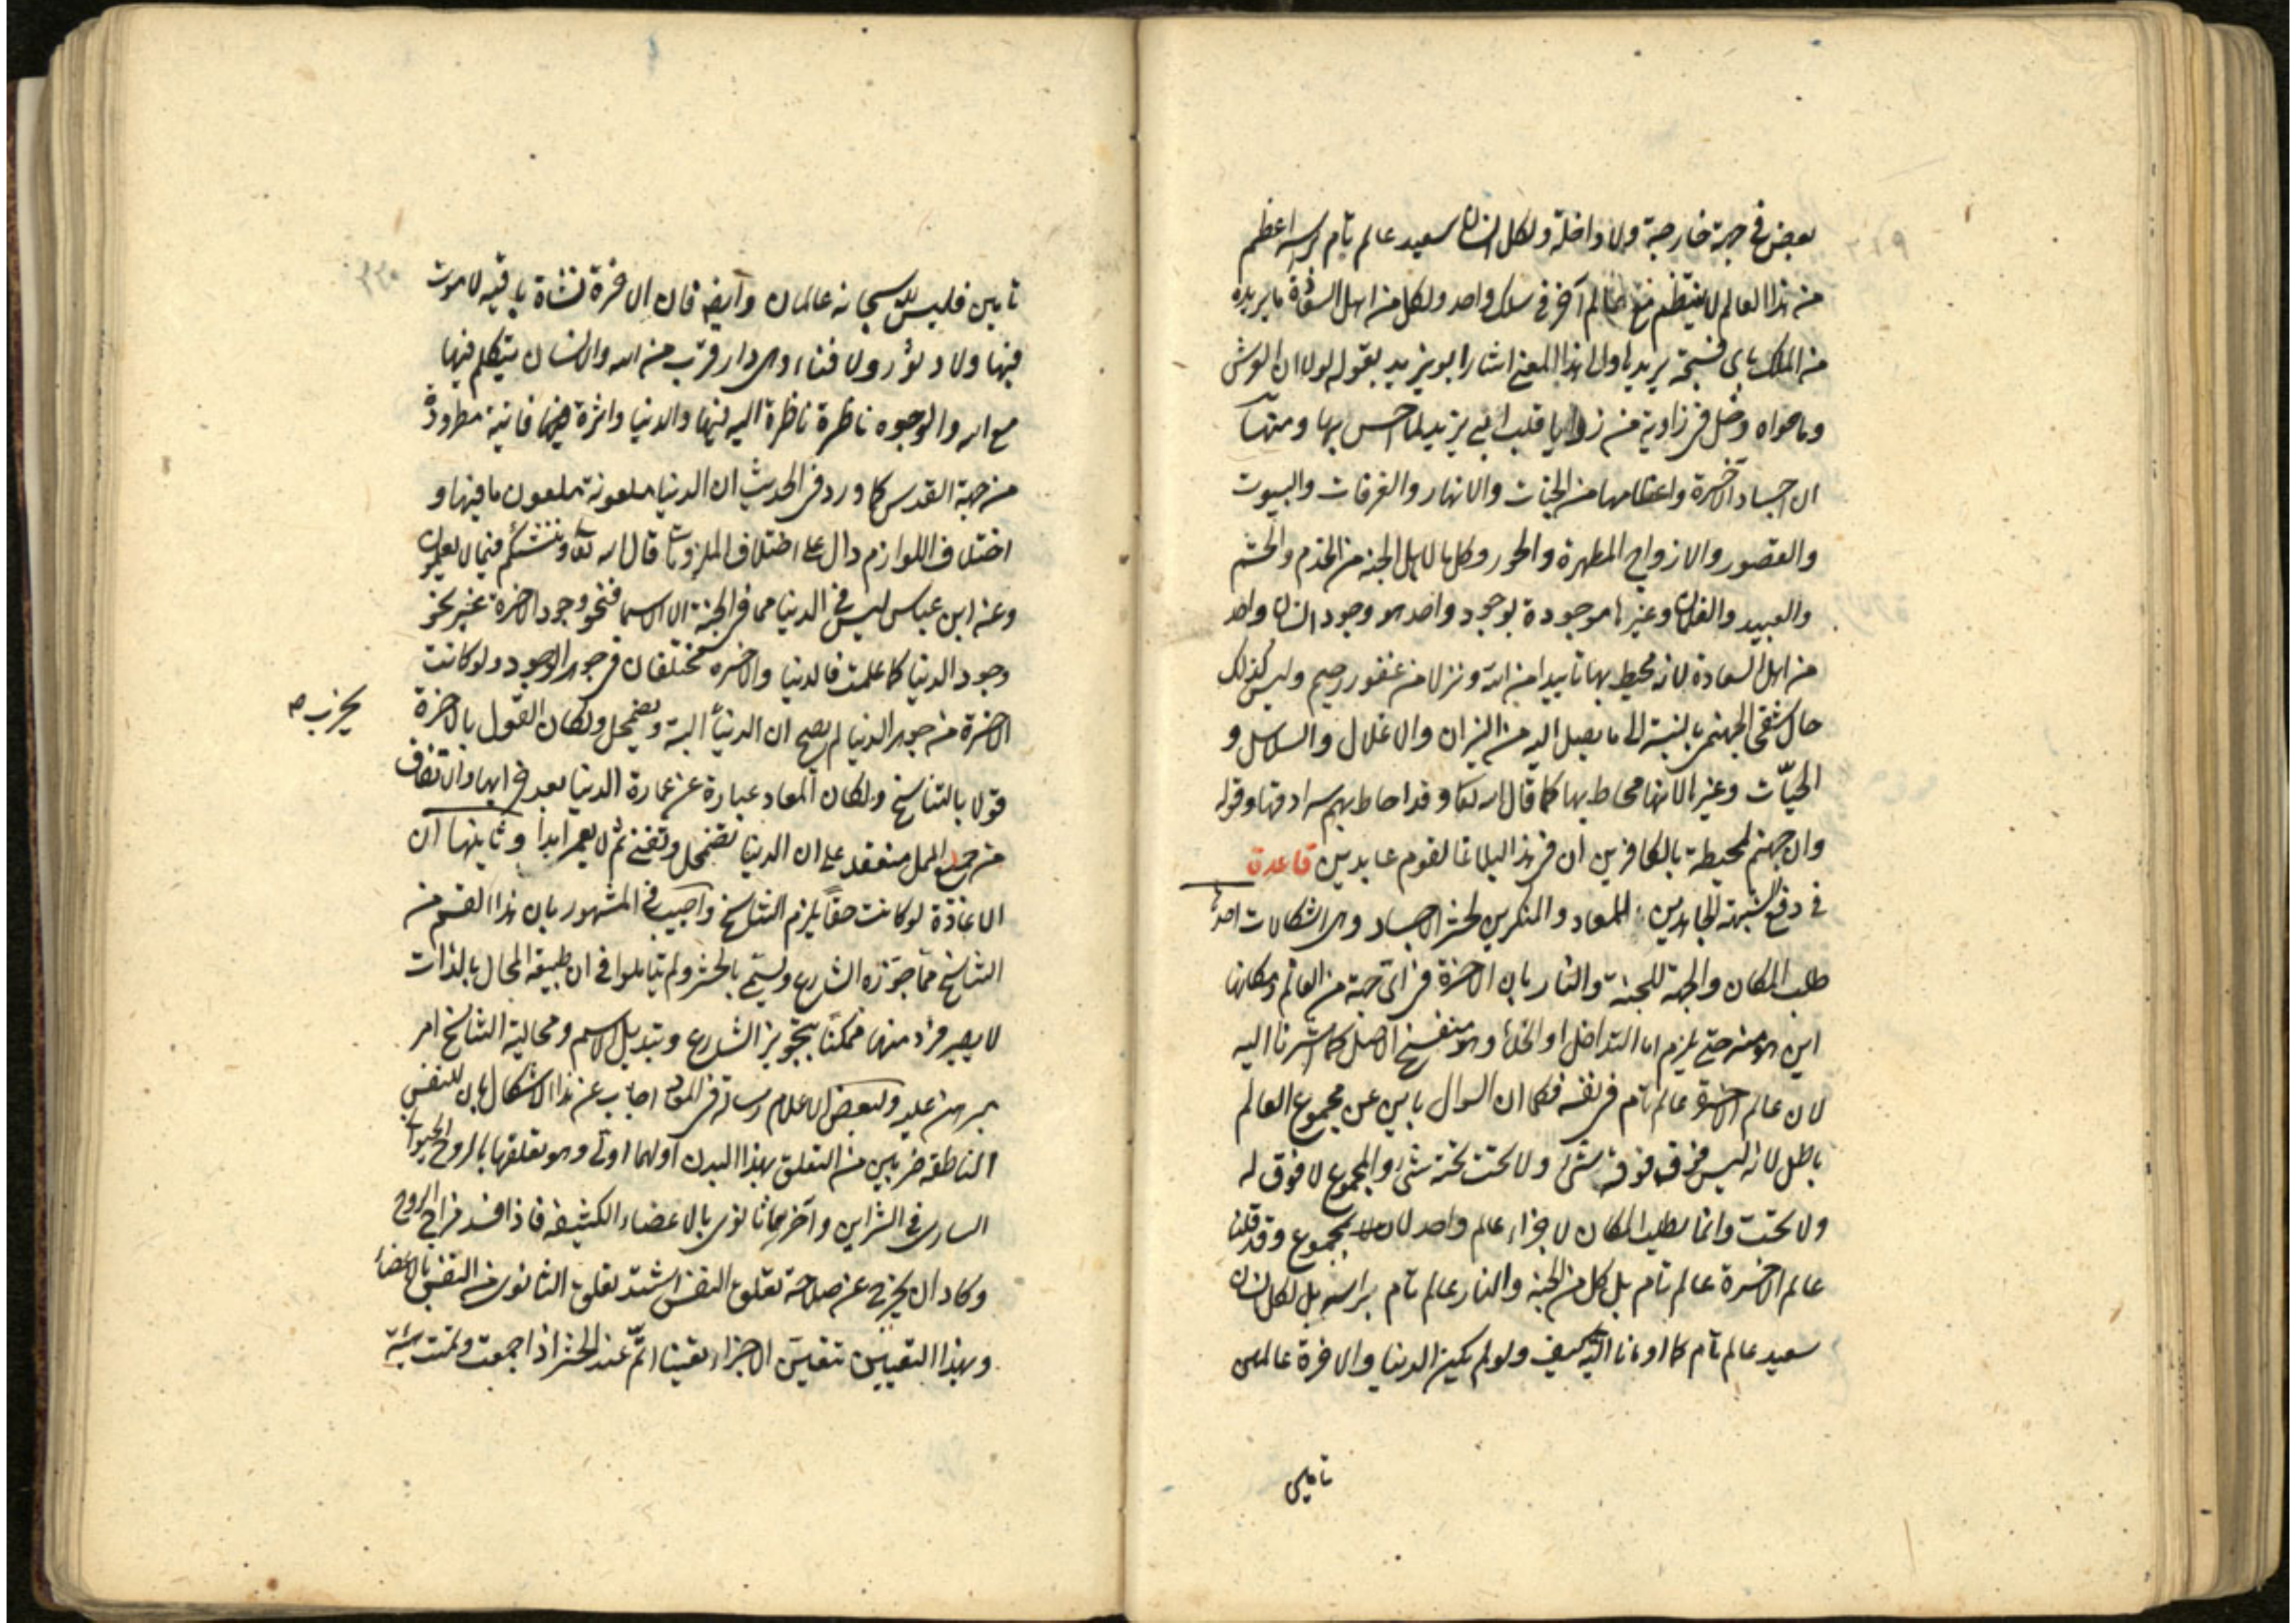 بعض فى جهة خارجة ولا داخلة ولكل انسان سعيد عالم تام براسه اعظم
من هذا العالم لا ينتظم مع عالم آخر فى سلك واحد ولكل من اهل السعادة ما يريده
من الملك باى فسحة يريدها والى هذا المعنى اشار ابو يزيد بقوله لو ان العرش
وما حواه دخل فى زاوية من زوايا قلب ابى يزيد لما احس بها ومنها
ان اجساد الآخرة واعظامها من الجنات والانهار والغرفات والبيوت
والقصور والازواج المطهرة والحور وكل ما لاهل الجنة من الخدم والحشم
والعبيد والغلمان وغيرها موجودة بوجود واحد هو وجود انسان واحد
من اهل السعادة لانه محيط بها تاييدا من الله ونزلا من غفور رحيم وليس كذلك
حال شقى الجهنمى بالنسبة الى ما يصل اليه من النيران والاغلال والسلاسل و
الحيّات وغيرها لانه محاط بها كما قال الله تعا وقد احاط بهم سرادقها وقوله
وان جهنم لمحيطة بالكافرين ان فى هذا لبلاغا لقوم عابدين قاعدة
فى دفع شبهة الجاحدين للمعاد والمنكرين لحشر الاجساد وهى اشكالات احدها
طلب المكان والجهة للجنة والنار بان الآخرة فى اى جهة من العالم ومكانها
اين هو منه حتى يلزم اما التداخل او الخلأ وهو منفسخ الاصل كما اشرنا اليه
لان عالم الآخرة عالم تام فى نفسه فكما ان السوال باين عن مجموع العالم
باطل لانه ليس فوق فوقه شئ ولا تحت تحته شئ والمجموع لا فوق له
ولا تحت وانما يطلب المكان لاجزاء عالم واحد لا لمجموع وقد قلنا
عالم الآخرة عالم تام بل كل من الجنة والنار عالم تام براسه بل لكل انسان
سعيد عالم تام كما اومانا اليه كيف ولو لم يكن الدنيا والآخرة عالمين
تامين
تامين فليس لله سبحانه عالمان وايضا فان الآخرة نشاة باقية لا موت
فيها ولا دثور ولا فناء وهى دار قرب من الله والانسان يتكلم فيها
مع الله والوجوه ناظرة ناظرة اليه فيها والدنيا داثرة فانية مطرودة
من جهة القدس كما ورد فى الحديث ان الدنيا ملعونة ملعون ما فيها و
اختلاف اللوازم دال على اختلاف الملزومات قال الله تعا وننشئكم فيما لا تعلمون
وعن ابن عباس ليس فى الدنيا مما فى الجنة الا الاسما فنحو وجود الآخرة غير نحو
وجود الدنيا كما علمت فالدنيا والآخرة مختلفان فى جوهر الوجود ولو كانت
الآخرة من جوهر الدنيا لم يصح ان الدنيا البتة وتضمحل ولكان القول بالآخرة
يخرب صح
قولا بالتناسخ ولكان المعاد عبارة عن عمارة الدنيا بعد خرابها والاتفاق
من جميع الملل منعقد على ان الدنيا تضمحل وتفنى ثم لا يعمر ابدا وثانيتها ان
الاعادة لو كانت حقا يلزم التناسخ واجيب فى المشهور بان هذا القسم من
التناسخ مما جوّزه الشارع ويسمّى بالحشر ولم يتاملوا فى ان طبيعة المحال بالذات
لا يصير فرد منها ممكنا بتجويز الشارع وتبديل الاسم ومحالية التناسخ امر
مبرهن عليه ولبعض الاعلام رسالة فى المعاد اجاب عن هذا الاشكال بان للنفس
الناطقة ضربين من التعلق بهذا البدن اولهما اولى وهو تعلقها بالروح الحيوانى
السارى فى الشراين وآخرهما ثانوى بالاعضاء الكثيفة فاذا فسد مزاج الروح
وكاد ان يخرج عن صلاحة تعلق النفس اشتد تعلق الثانوى من النفس بالاعضاء
وبهذا التعيين تتعين الاجزاء تعينا اتّم عند الحشر اذا جمعت وتمت